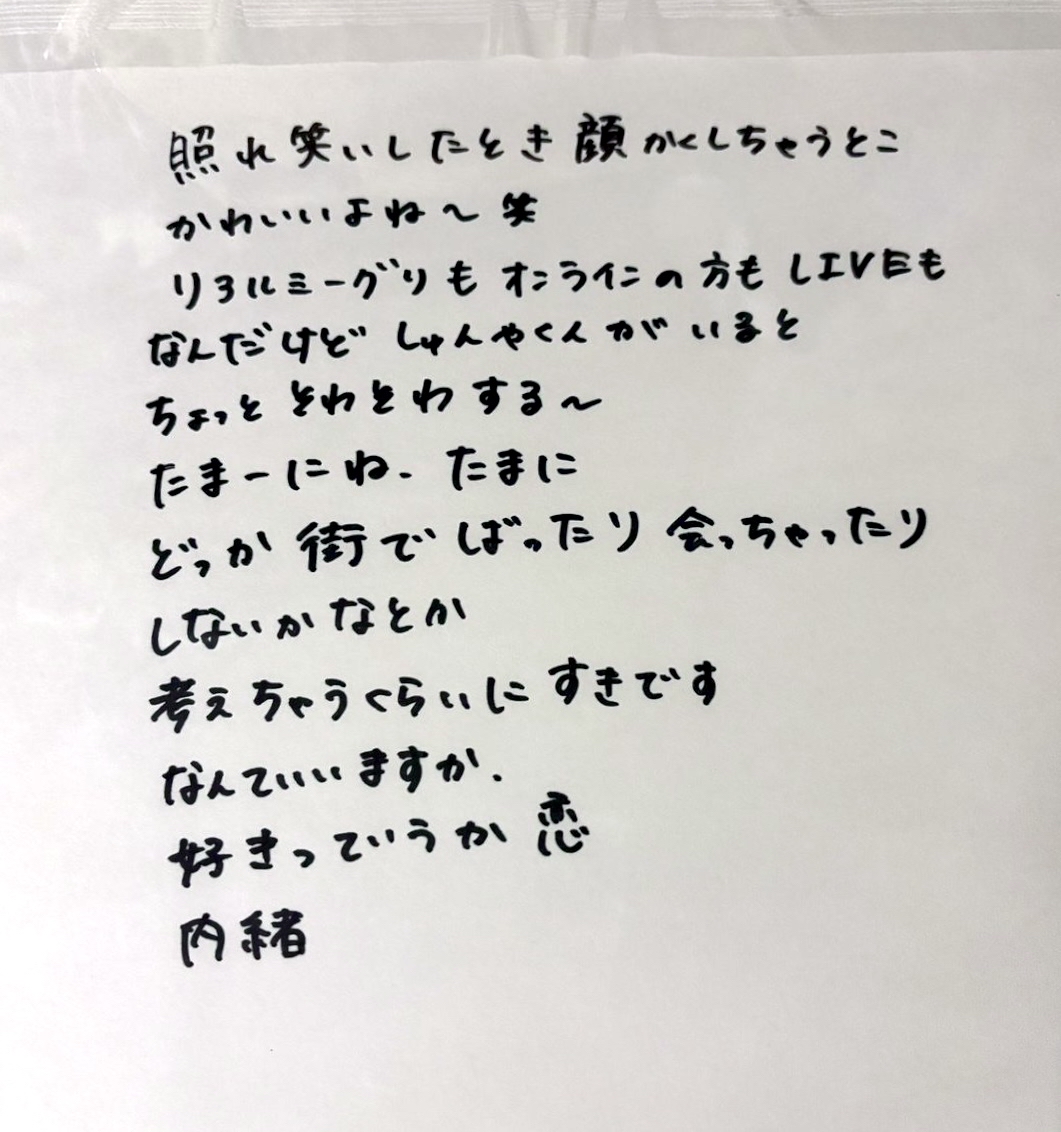 照れ笑いしたとき顔かくしちゃうとこ
かわいいよね〜笑
リアルミーグリもオンラインの方もLIVEも
なんだけどしゅんやくんがいると
ちょっとそわそわする〜
たまーにね、たまに
どっか街でばったり会っちゃったり
しないかなとか
考えちゃうくらいにすきです
なんていいますか、
好きっていうか恋
内緒